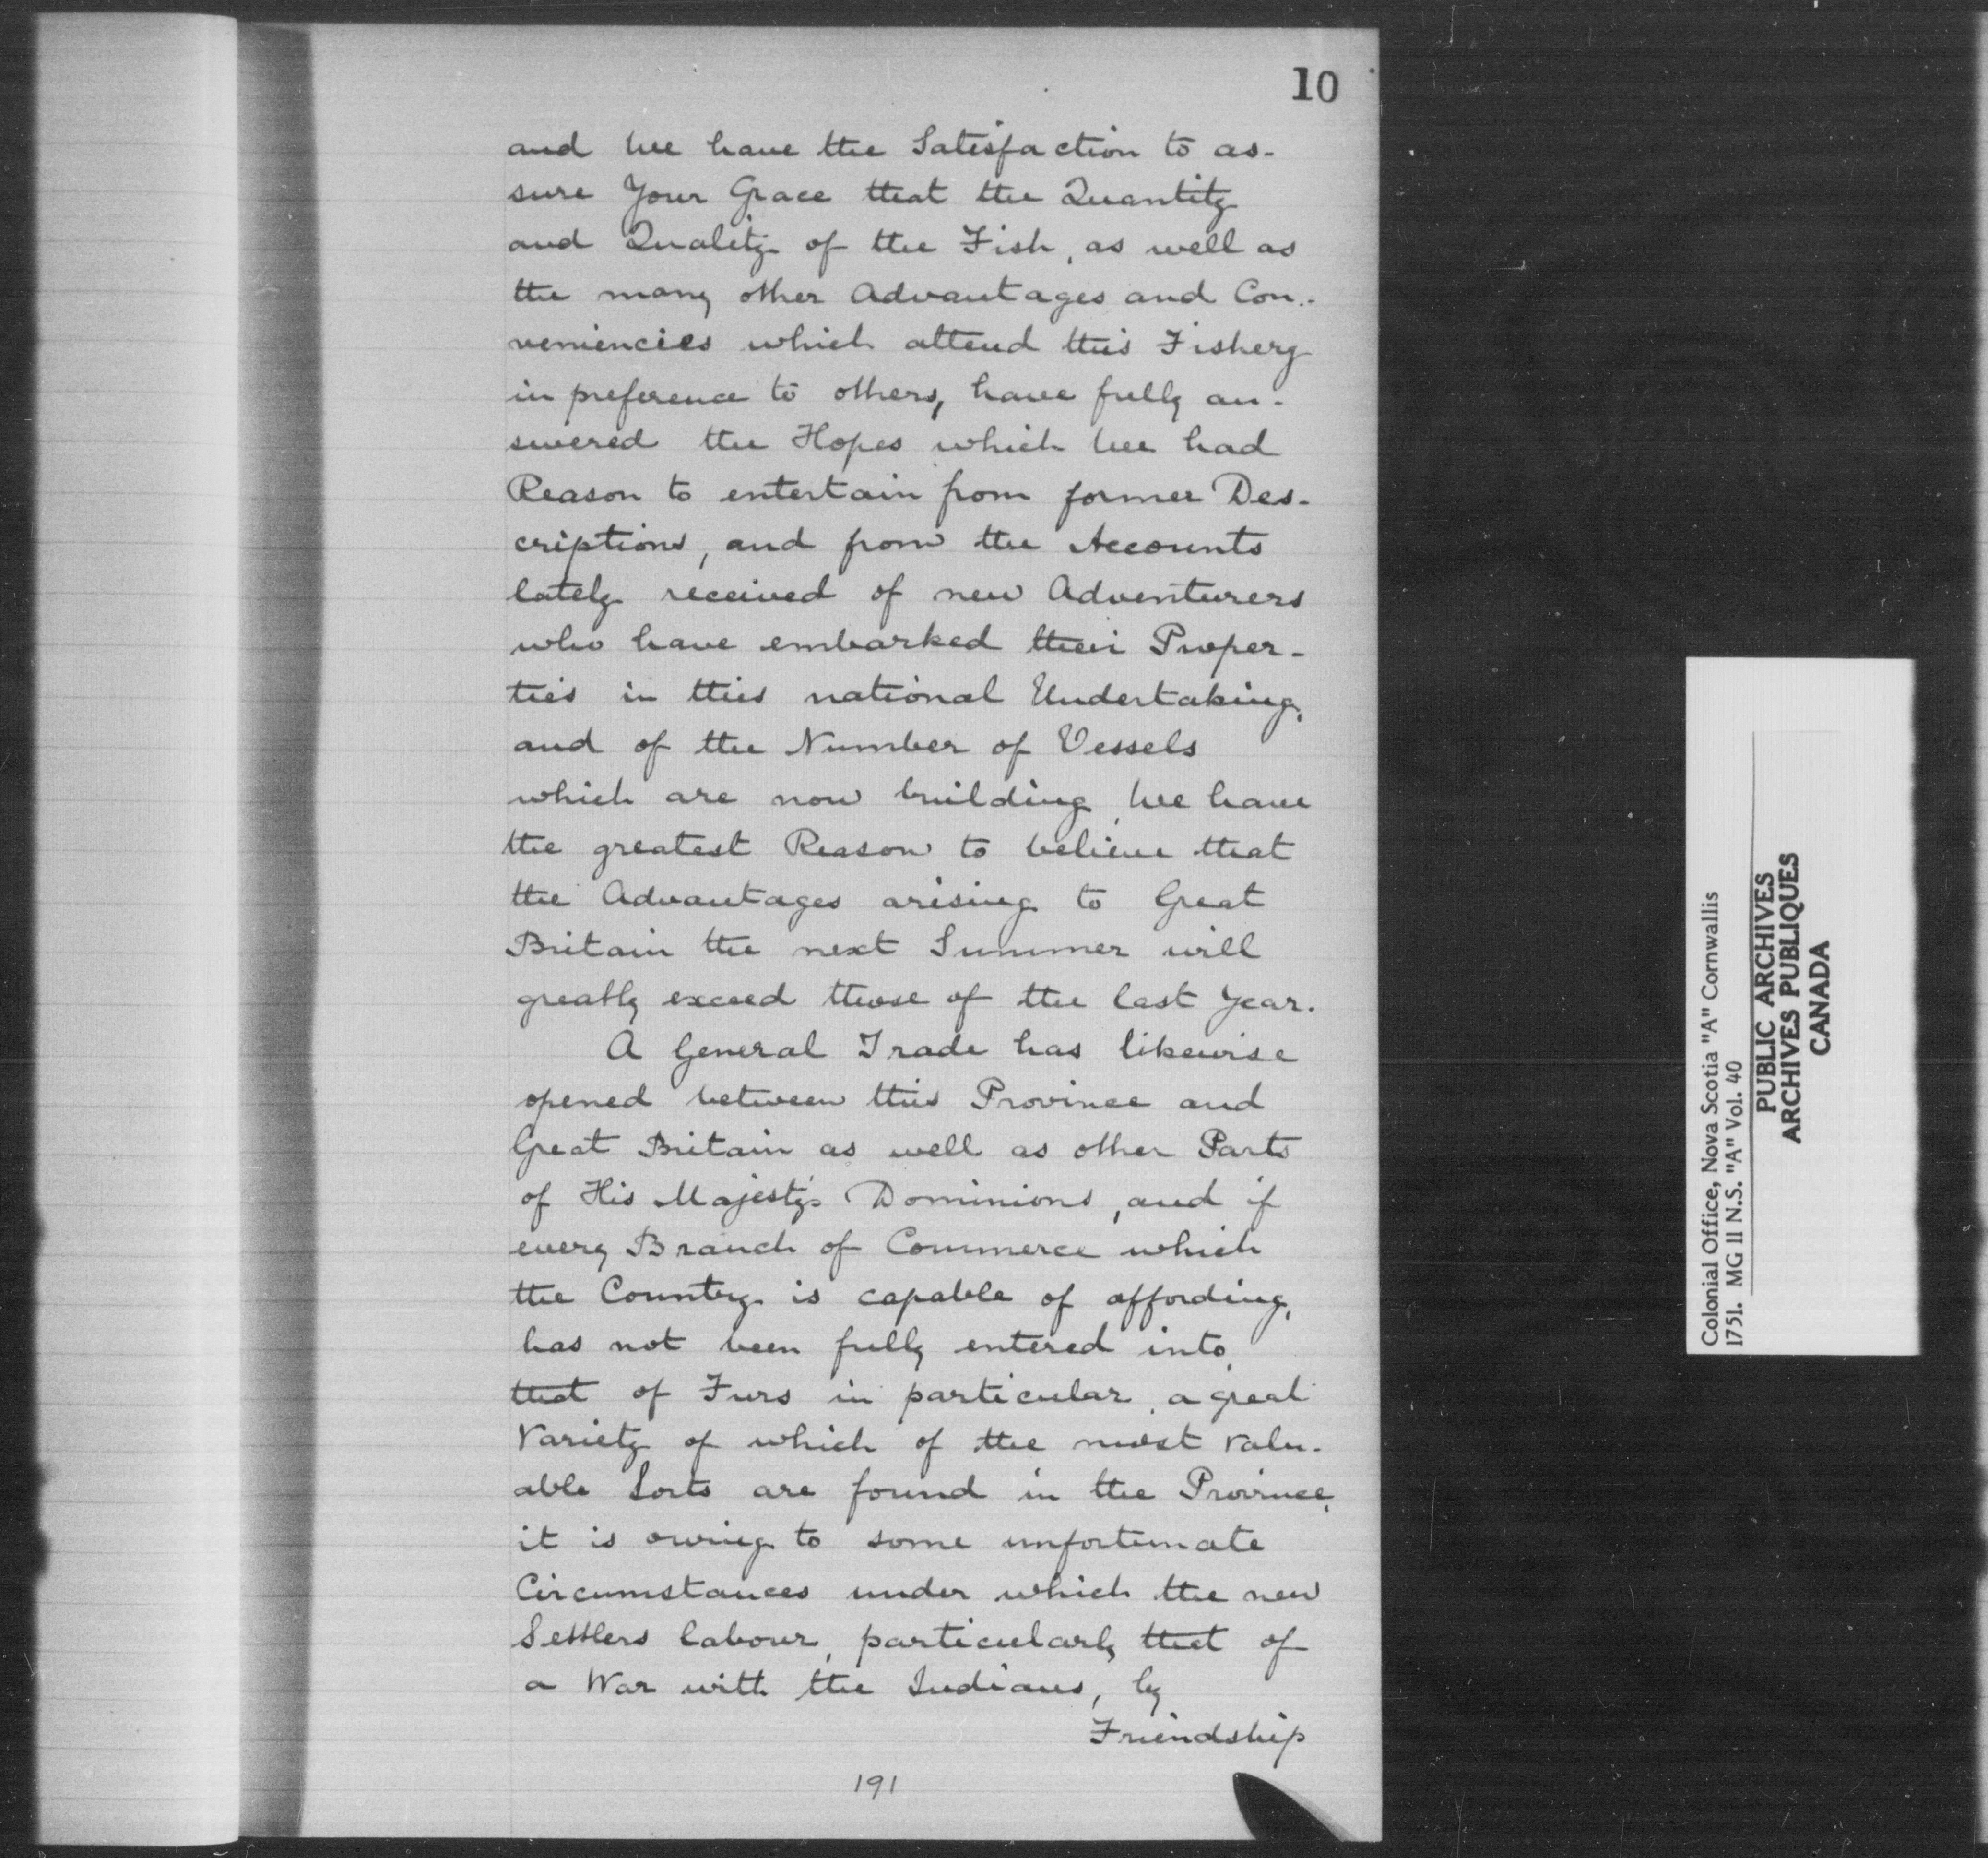 10
and We have the Satisfaction to as-
sure Your Grace that the Quantity
and Quality of the Fish, as well as
the many other Advantages and Con-
veniencies which attend this Fishery
in preference to others, have fully an-
swered the Hopes which We had
Reason to entertain from former Des-
criptions, and from the Accounts
lately received of new Adventurers
who have embarked their Proper-
ties in this national Undertaking,
and of the Number of Vessels
which are now building, We have
the greatest Reason to believe that
the Advantages arising to Great
Britain the next Summer will
greatly exceed those of the last Year.
A General Trade has likewise
opened between this Province and
Great Britain as well as other Parts
of His Majesty's Dominions, and if
every Branch of Commerce which
the Country is capable of affording,
has not been fully entered into,
that of Furs in particular, a great
Variety of which of the most valu-
able Sorts are found in the Province,
it is owing to some unfortunate
Circumstances under which the new
Settlers labour, particularly that of
a War with the Indians, by
Friendship
191
Colonial Office, Nova Scotia "A" Cornwallis
1751. MG 11 N.S. "A" Vol. 40
PUBLIC ARCHIVES
ARCHIVES PUBLIQUES
CANADA